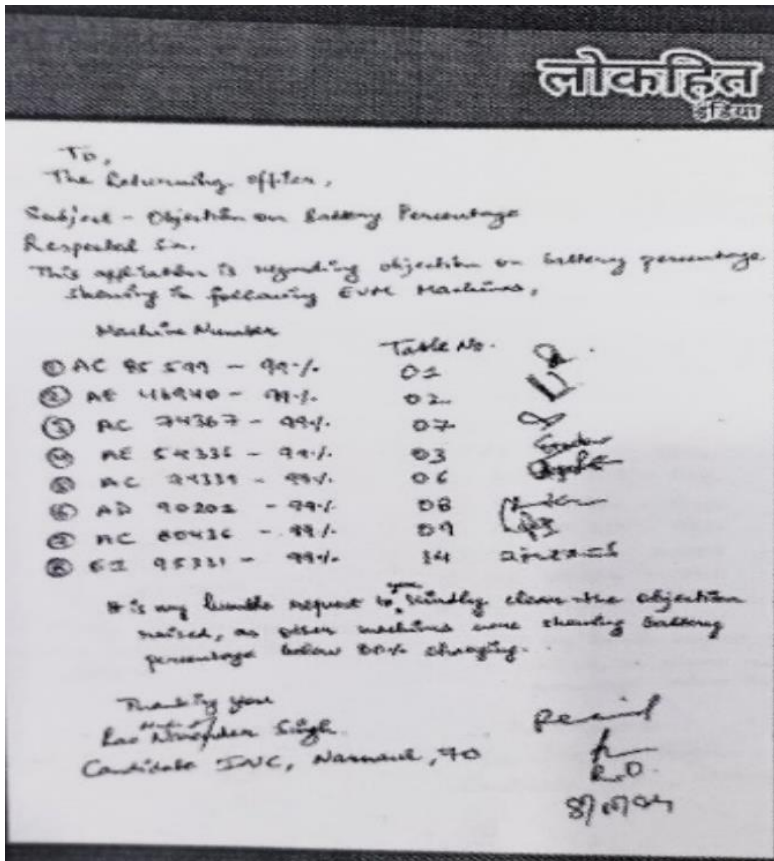 लोकहित
इंडिया
To,
The Returning officer,
Subject - Objection on Battery Percentage
Respected Sir.
This application is regarding objection on battery percentage
showing in following EVM Machines,
Machine Number
Table No.
① AC 85599 - 99% 01
② AE 46940 - 99% 02
③ AC 74367 - 99% 07
④ AE 54335 - 99% 03
⑤ AC - 99% 06
⑥ AD 90201 - 99% 08
⑦ AC 80436 - 99% 09
⑧ 95331 - 99% 14
It is my humble request to you kindly clear the objection
raised, as other machines were showing battery
percentage below 80% charging.
Thanking you
Rao Narender Singh
Candidate INC, Narnaul, 70
R.O.